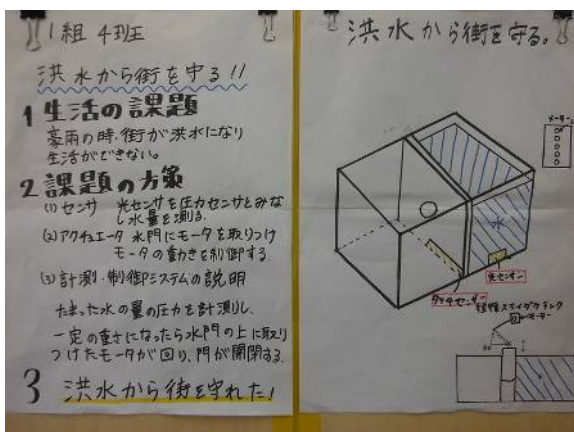 1組 4班
洪水から街を守る!!
1 生活の課題
豪雨の時、街が洪水になり
生活ができない。
2 課題の方策
(1) センサ 光センサを圧力センサとみな
し水量を測る。
(2) アクチュエータ 水門にモータを取りつけ
モータの動きを制御する
(3) 計測・制御システムの説明
たまった水の量の圧力を計測し、
一定の重さになったら水門の上に取り
つけたモータが回り、門が開閉する。
3 洪水から街を守れた!
洪水から街を守る。
メーター
水
光センサー
タッチセンサー
モーター